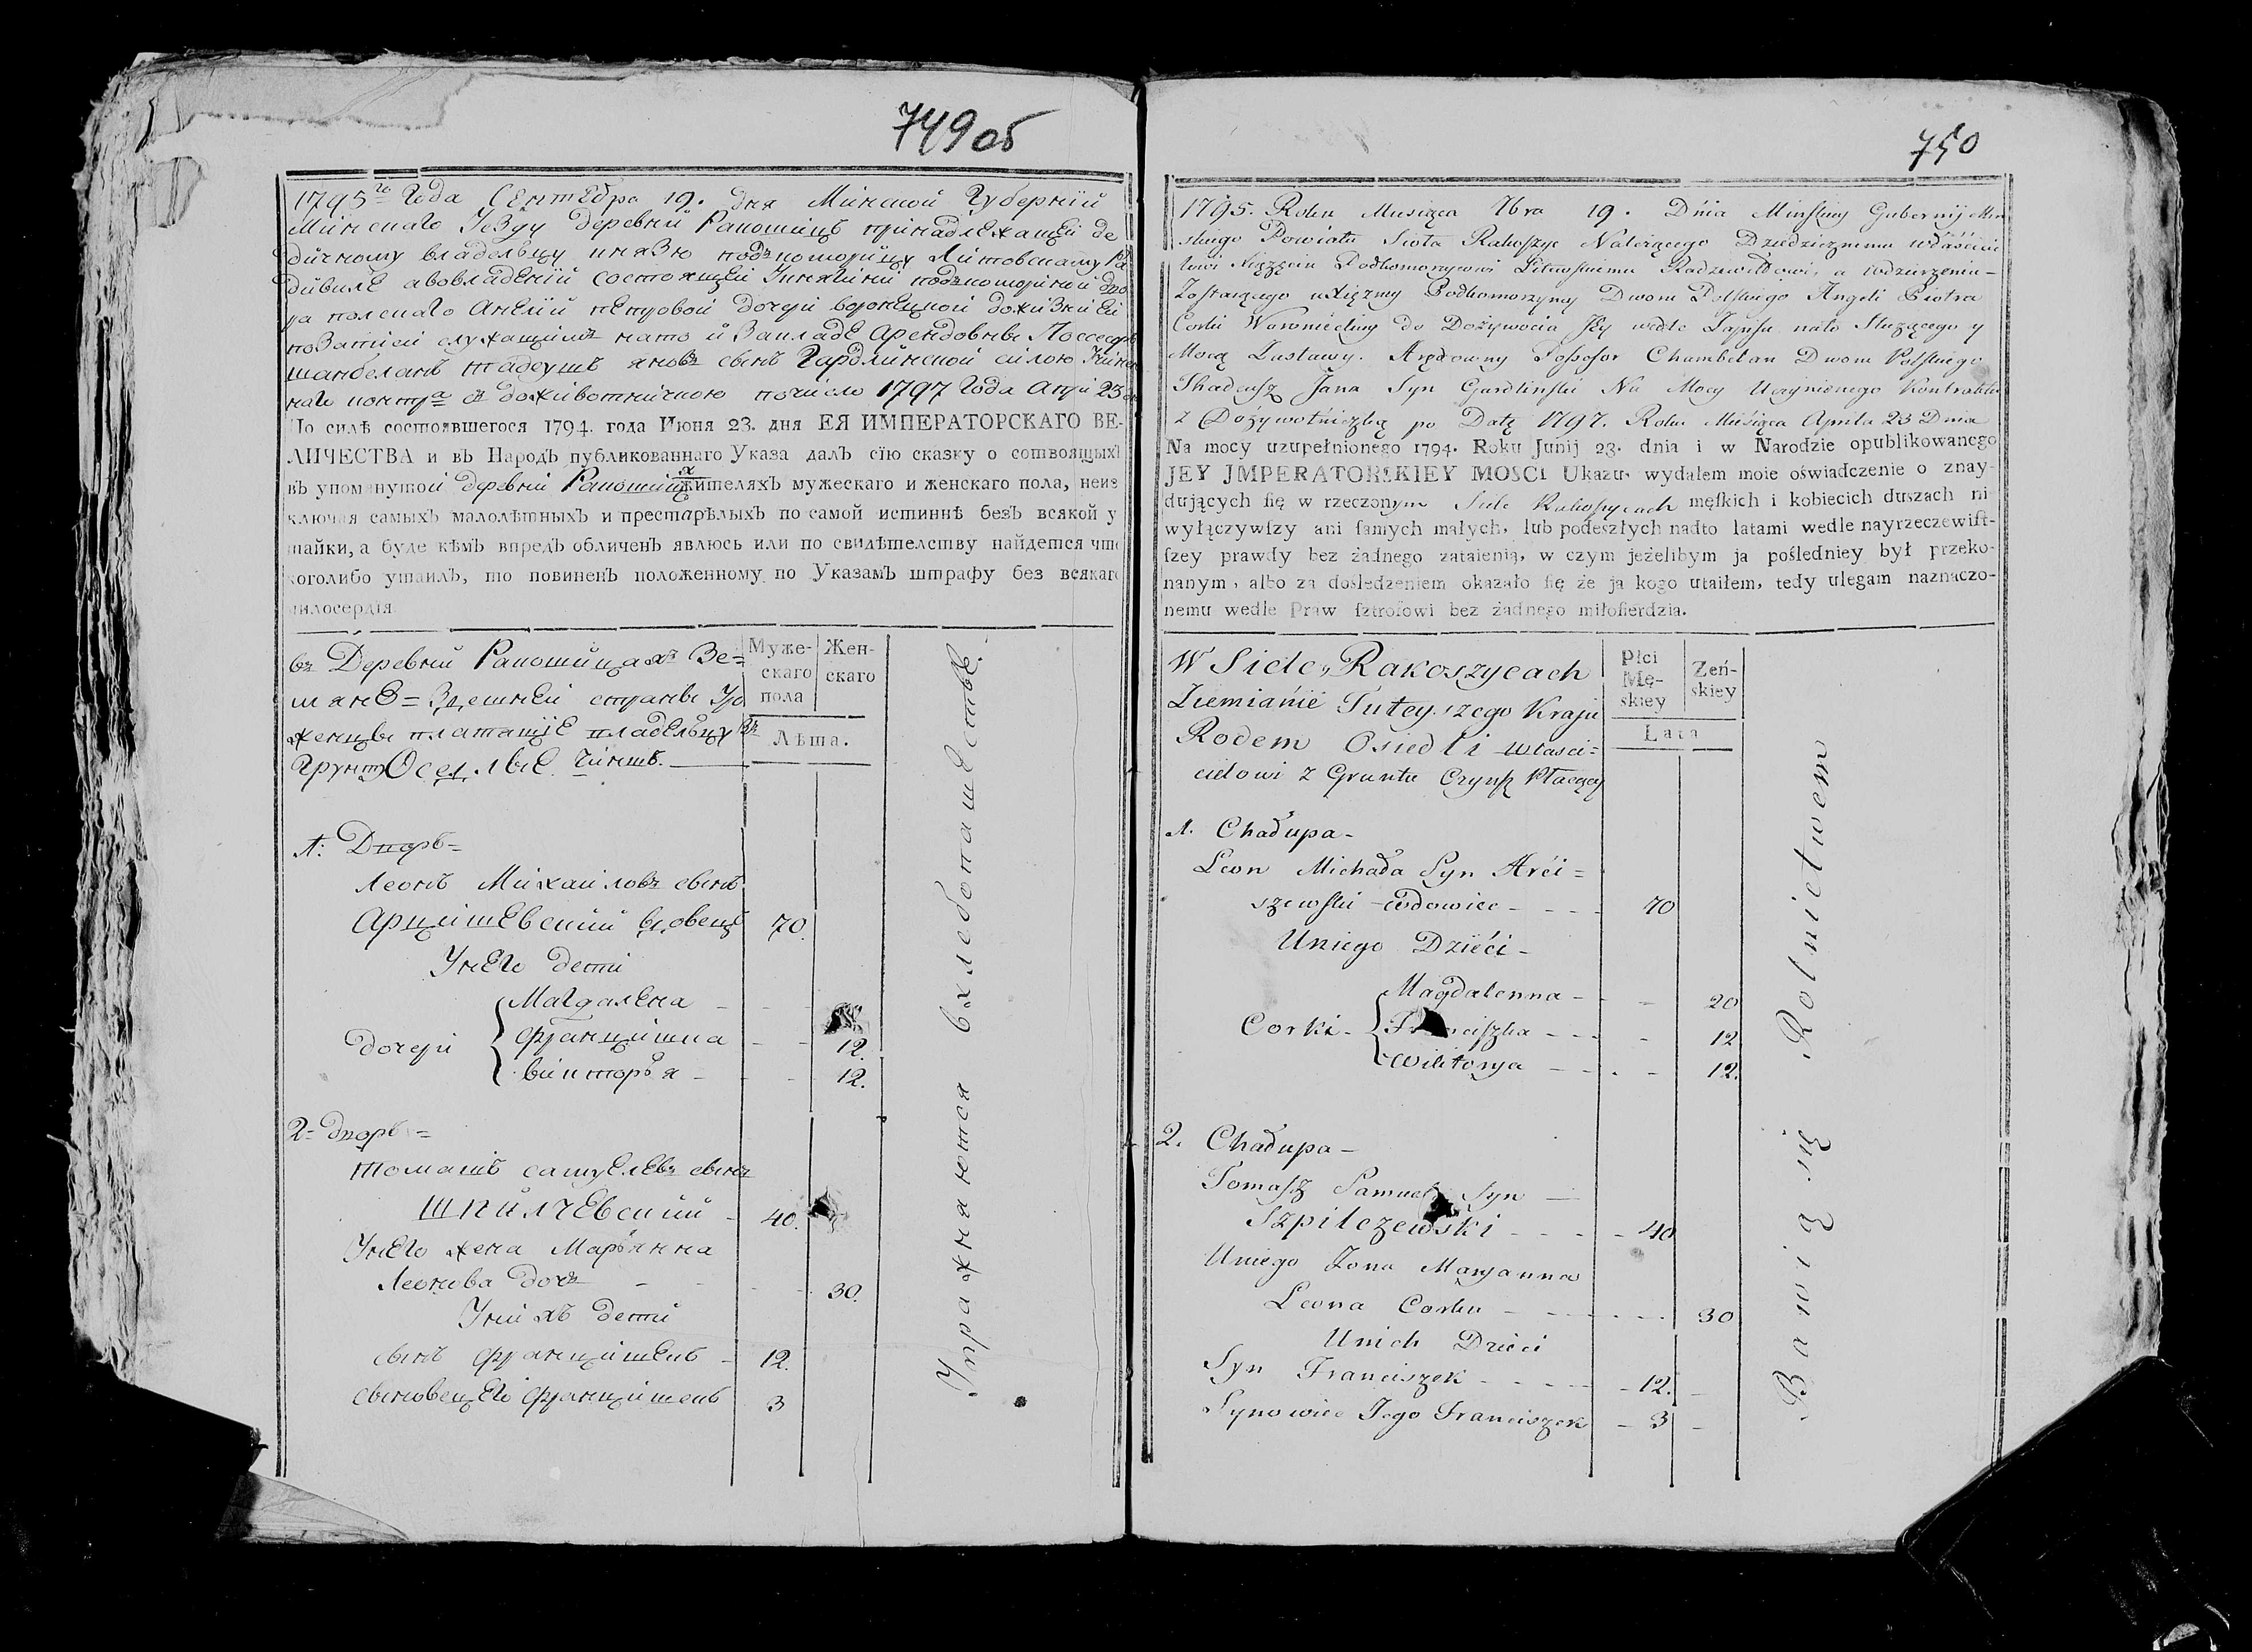 749 об
1795го Года Сентебра 19. дня Минской Губернии
Минскаго Уезду деревни Ракошиць принадлежащей де
дичному владельцу князю подкоморыцу Литовскому Ра
дивиле авовладении состоящей Княгини подкоморыной дво
ра полскаго Анелии петровой дочери воронецкой дожизни Ей
позаписи служащии на то и Закладе Арендовны Поссесоръ
шанбеланъ тадеушъ яновъ сынъ Гардлинской силою
наго контра дживотничкою почисло 1797 Года Апри 23
По силѣ состоявшегося 1794. года Июня 23. дня ЕЯ ИМПЕРАТОРСКАГО ВЕ-
ЛИЧЕСТВА и въ Народъ публикованнаго Указа далъ сїю сказку о сотвоящыхъ
въ упомянутой деревни Ракошицах жителяхъ мужескаго и женскаго пола, неиз
ключая самыхъ малолѣтныхъ и престарѣлыхъ по самой истиннѣ безъ всякой у
тайки, а буде кѣмъ впредъ обличенъ явлюсь или по свидѣтелству найдется что
коголибо утаилъ, то повиненъ положенному по Указамъ штрафу без всякаго
милосердїя
въ Деревни Ракошицахъ Зе=
мяне= Здешней страны Уро
женцы платащие владельцу Зъ
Грунту Оселые Чиншъ.
Муже-
скаго
пола
Жен-
скаго
Лѣта.
1: Дворъ=
Леонъ Михаиловъ сынъ
Арцишевский вдовецъ 70.
Унего дети
Магдалена
дочери Францишка 12.
викторыя 12.
2= дворъ=
томашъ самуелевъ сынъ
шпилчевский 40.
Унего жена Марьянна
Леонова дочь 30.
Унихъ дети
сынъ францишекъ 12.
сыновецъ Его францишекъ 3
Упражняются в хлебопашестве.
750
1795. Roku Miesiąca 7bra 19. Dnia Minskiey Gubernij Min
skiego Powiatu Sioła Rakoszyc Należącego Dziedzicznemu właścicie
lowi Xiążęciu Podkomorzycowi Litewskiemu Radziwiłłowi, a wdzierżeniu
Zostaiącego uXiężny Podkomorzyny Dworu Polskiego Angeli Piotra
Corki Woronieckiey do Dożywocia Jey wedle Zapisu nato Służącego y
Mocą Zastawy. Arędowny Possesor Chambelan Dworu Polskiego
Thadeusz Jana Syn Gardlinski Na Mocy Uczynionego Kontraktu
z Dożywotniczką po Datę 1797. Roku Miesiąca Aprila 23 Dnia
Na mocy uzupełnionego 1794. Roku Junij 23. dnia i w Narodzie opublikowanego
JEY JMPERATORSKIEY MOSCI Ukazu, wydałem moie oświadczenie o znay-
dujących ſię w rzeczonym Siele Rakoszycach męſkich i kobiecich duszach ni
wyłączywſzy ani ſamych małych, lub podeszłych nadto latami wedle nayrzeczewiſt-
ſzey prawdy bez żadnego zataienią, w czym jeżelibym ja pośledniey był przeko-
nanym, albo za dośledzeniem okazało ſię że ja kogo utaiłem, tedy ulegam naznaczo-
nemu wedle Praw ſztrofowi bez żadnego miłoſierdzia.
W Siele, Rakoszycach
Ziemianie Tuteyszego Kraju
Rodem Osiedli Własci=
cielowi z Gruntu Czynsz Płacący
Płci
Mę-
skiey
Żeń-
skiey
Lata
1. Chałupa-
Leon Michała Syn Arci=
szewski - wdowiec - 70
Uniego Dzieci -
Magdalenna - 20
Corki - Franciszka - 12
Wiktorya - 12.
2. Chałupa -
Tomasz Samuela Syn -
Szpilczewski - 40
Uniego Żona Maryanna
Leona Corka - 30
Unich Dzieci
Syn Franciszek - 12.
Synowiec Jego Franciszek - 3
Bawią się Rolnictwem